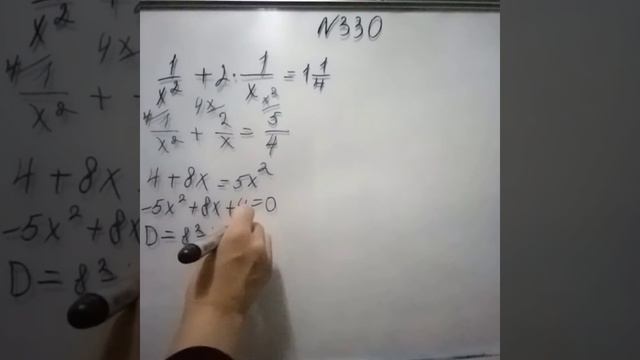 N330
1/x² + 2 · 1/x = 1 1/4
4/ 1/x² + 4x/ 2/x = x²/ 5/4
4 + 8x = 5x²
-5x² + 8x + 4 = 0
D = 8²